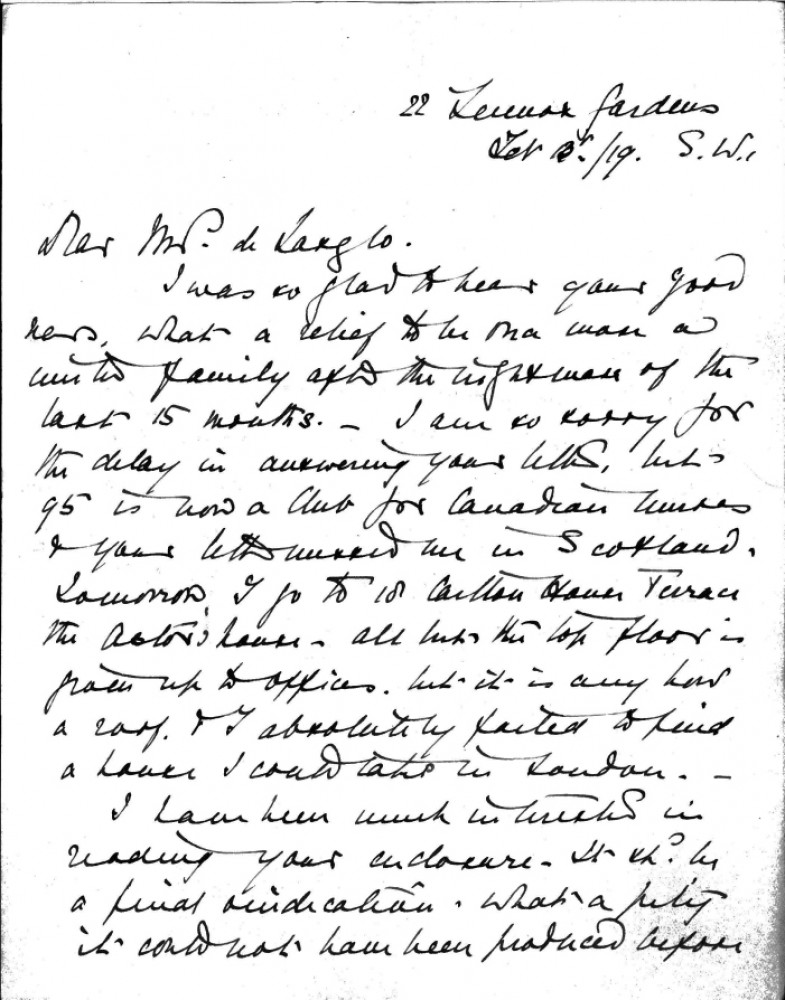 22 Lennox Gardens
Feb /19. S.W.1
Dear Mrs. de
I was so glad to hear your good
news, what a relief to be once more a
united family after the nightmare of the
last 15 months. - I am so sorry for
the delay in answering your letter, but
95 is now a Club for Canadian nurses
& your letter missed me in Scotland.
Tomorrow I go to 18 Carlton House Terrace
the Astors' house - all but the top floor is
given up to offices. but it is any how
a roof. & I absolutely failed to find
a house I could take in London. -
I have been much interested in
reading your enclosure - It shd. be
a final vindication. What a pity
it could not have been produced before